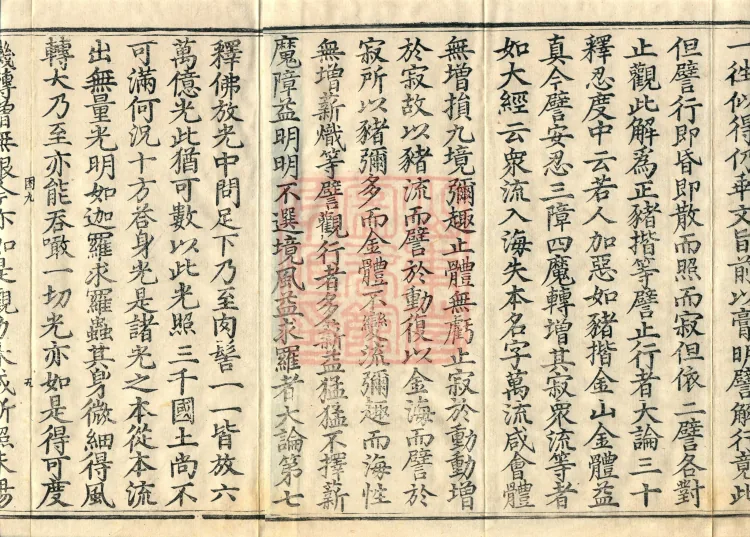 一徃似得仍乖文旨前以膏明譬解行竟此
但譬行即昏即散而照而寂但依二譬各對
止觀此解為正豬揩等譬止行者大論三十
釋忍度中云若人加惡如豬揩金山金體益
真今譬安忍三障四魔轉增其寂衆流等者
如大經云衆流入海失本名字萬流咸會體
無增損九境彌趣止體無虧止寂於動動增
於寂故以豬流而譬於動復以金海而譬於
寂所以豬彌多而金體不變流彌趣而海性
無增新熾等譬觀行者多薪益猛猛不擇薪
魔障益明明不選境風益求羅者大論第七
釋佛放光中問足下乃至肉髻一一皆放六
萬億光此猶可數以此光照三千國土尚不
可滿何況十方荅身光是諸光之本從本流
出無量光明如迦羅求羅蟲其身微細得風
轉大乃至亦能吞噉一切光亦如是得可度
機轉增無限今亦如是觀力